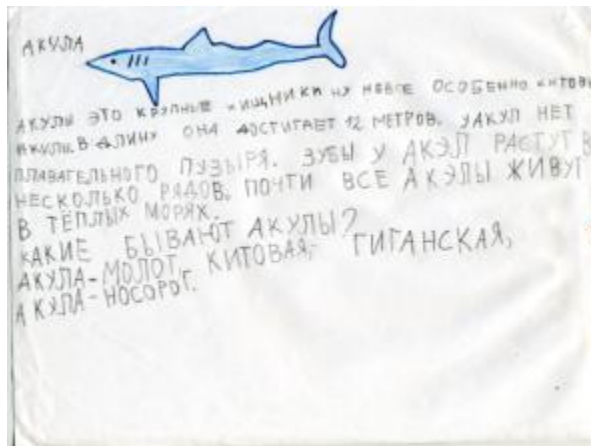 АКУЛА
АКУЛЫ ЭТО КРУПНЫЕ ХИЩНИКИ НУ ОСОБЕННО КИТОВЫ
АКУЛЫ. В ДЛИНУ ОНА ДОСТИГАЕТ 12 МЕТРОВ. УАКУЛ НЕТ
ПЛАВАТЕЛЬНОГО ПУЗЫРЯ. ЗУБЫ У АКЭЛ РАСТУТ В
НЕСКОЛЬКО РЯДОВ. ПОЧТИ ВСЕ АКЭЛЫ ЖИВУТ
В ТЁПЛЫХ МОРЯХ.
КАКИЕ БЫВАЮТ АКУЛЫ?
АКУЛА-МОЛОТ, КИТОВАЯ, ГИГАНСКАЯ,
АКУЛА-НОСОРОГ.